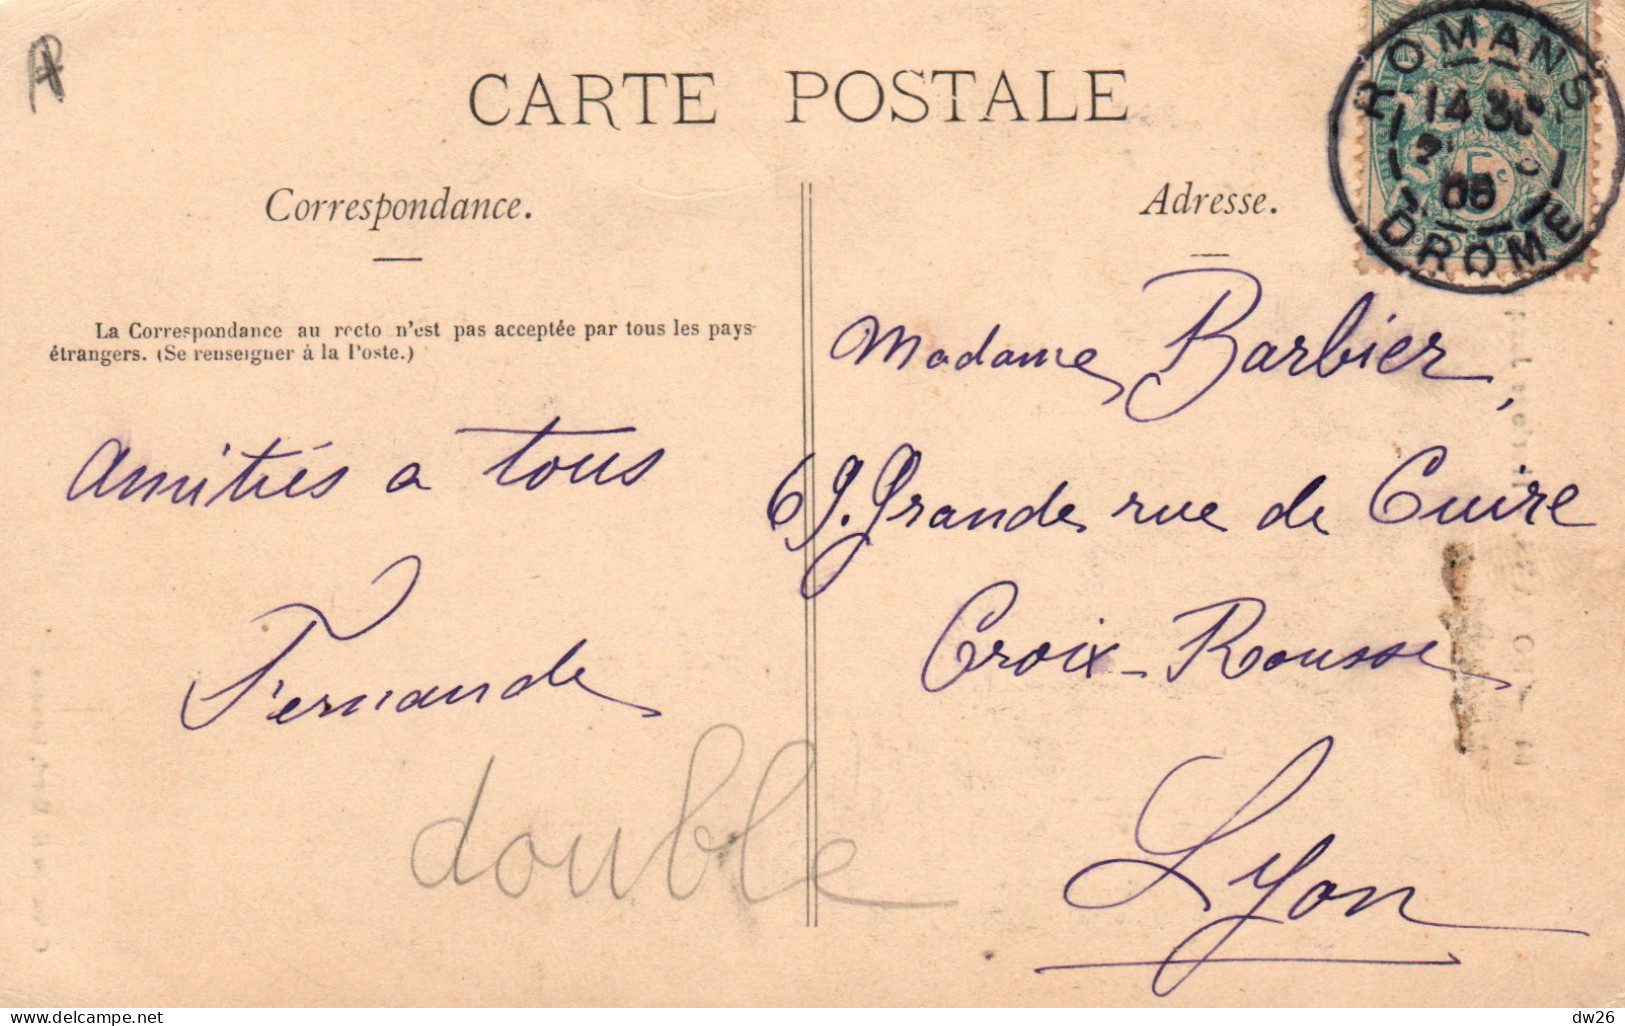 CARTE POSTALE
ROMANS
DROME
Correspondance.
Adresse.
La Correspondance au recto n'est pas acceptée par tous les pays
étrangers. (Se renseigner à la Poste.)
Madame Barbier,
69. Grande rue de Cuire
Croix-Rousse
Lyon
Amitiés a tous
Fernande
double
delcampe.net
dw26